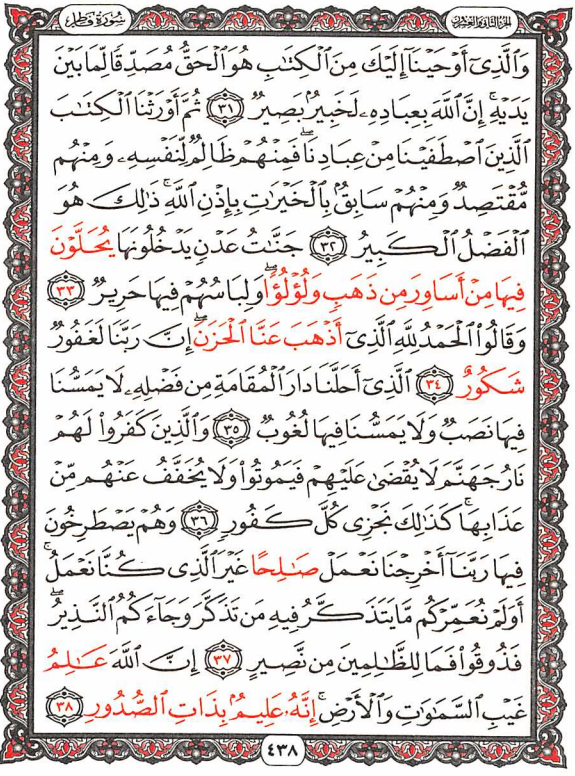 سُورَةُ فَاطِر
الجُزءُ الثَّانِي وَالعِشرُونَ
وَٱلَّذِىٓ أَوْحَيْنَآ إِلَيْكَ مِنَ ٱلْكِتَٰبِ هُوَ ٱلْحَقُّ مُصَدِّقًا لِّمَا بَيْنَ
يَدَيْهِ ۗ إِنَّ ٱللَّهَ بِعِبَادِهِۦ لَخَبِيرٌۢ بَصِيرٌ ٣١ ثُمَّ أَوْرَثْنَا ٱلْكِتَٰبَ
ٱلَّذِينَ ٱصْطَفَيْنَا مِنْ عِبَادِنَا ۖ فَمِنْهُمْ ظَالِمٌ لِّنَفْسِهِۦ وَمِنْهُم
مُّقْتَصِدٌ وَمِنْهُمْ سَابِقٌۢ بِٱلْخَيْرَٰتِ بِإِذْنِ ٱللَّهِ ۚ ذَٰلِكَ هُوَ
ٱلْفَضْلُ ٱلْكَبِيرُ ٣٢ جَنَّٰتُ عَدْنٍ يَدْخُلُونَهَا يُحَلَّوْنَ
فِيهَا مِنْ أَسَاوِرَ مِن ذَهَبٍ وَلُؤْلُؤًا ۖ وَلِبَاسُهُمْ فِيهَا حَرِيرٌ ٣٣
وَقَالُوا۟ ٱلْحَمْدُ لِلَّهِ ٱلَّذِىٓ أَذْهَبَ عَنَّا ٱلْحَزَنَ ۖ إِنَّ رَبَّنَا لَغَفُورٌ
شَكُورٌ ٣٤ ٱلَّذِىٓ أَحَلَّنَا دَارَ ٱلْمُقَامَةِ مِن فَضْلِهِۦ لَا يَمَسُّنَا
فِيهَا نَصَبٌ وَلَا يَمَسُّنَا فِيهَا لُغُوبٌ ٣٥ وَٱلَّذِينَ كَفَرُوا۟ لَهُمْ
نَارُ جَهَنَّمَ لَا يُقْضَىٰ عَلَيْهِمْ فَيَمُوتُوا۟ وَلَا يُخَفَّفُ عَنْهُم مِّنْ
عَذَابِهَا ۚ كَذَٰلِكَ نَجْزِى كُلَّ كَفُورٍ ٣٦ وَهُمْ يَصْطَرِخُونَ
فِيهَا رَبَّنَآ أَخْرِجْنَا نَعْمَلْ صَٰلِحًا غَيْرَ ٱلَّذِى كُنَّا نَعْمَلُ ۚ
أَوَلَمْ نُعَمِّرْكُم مَّا يَتَذَكَّرُ فِيهِ مَن تَذَكَّرَ وَجَآءَكُمُ ٱلنَّذِيرُ ۖ
فَذُوقُوا۟ فَمَا لِلظَّٰلِمِينَ مِن نَّصِيرٍ ٣٧ إِنَّ ٱللَّهَ عَٰلِمُ
غَيْبِ ٱلسَّمَٰوَٰتِ وَٱلْأَرْضِ ۚ إِنَّهُۥ عَلِيمٌۢ بِذَاتِ ٱلصُّدُورِ ٣٨
٤٣٨